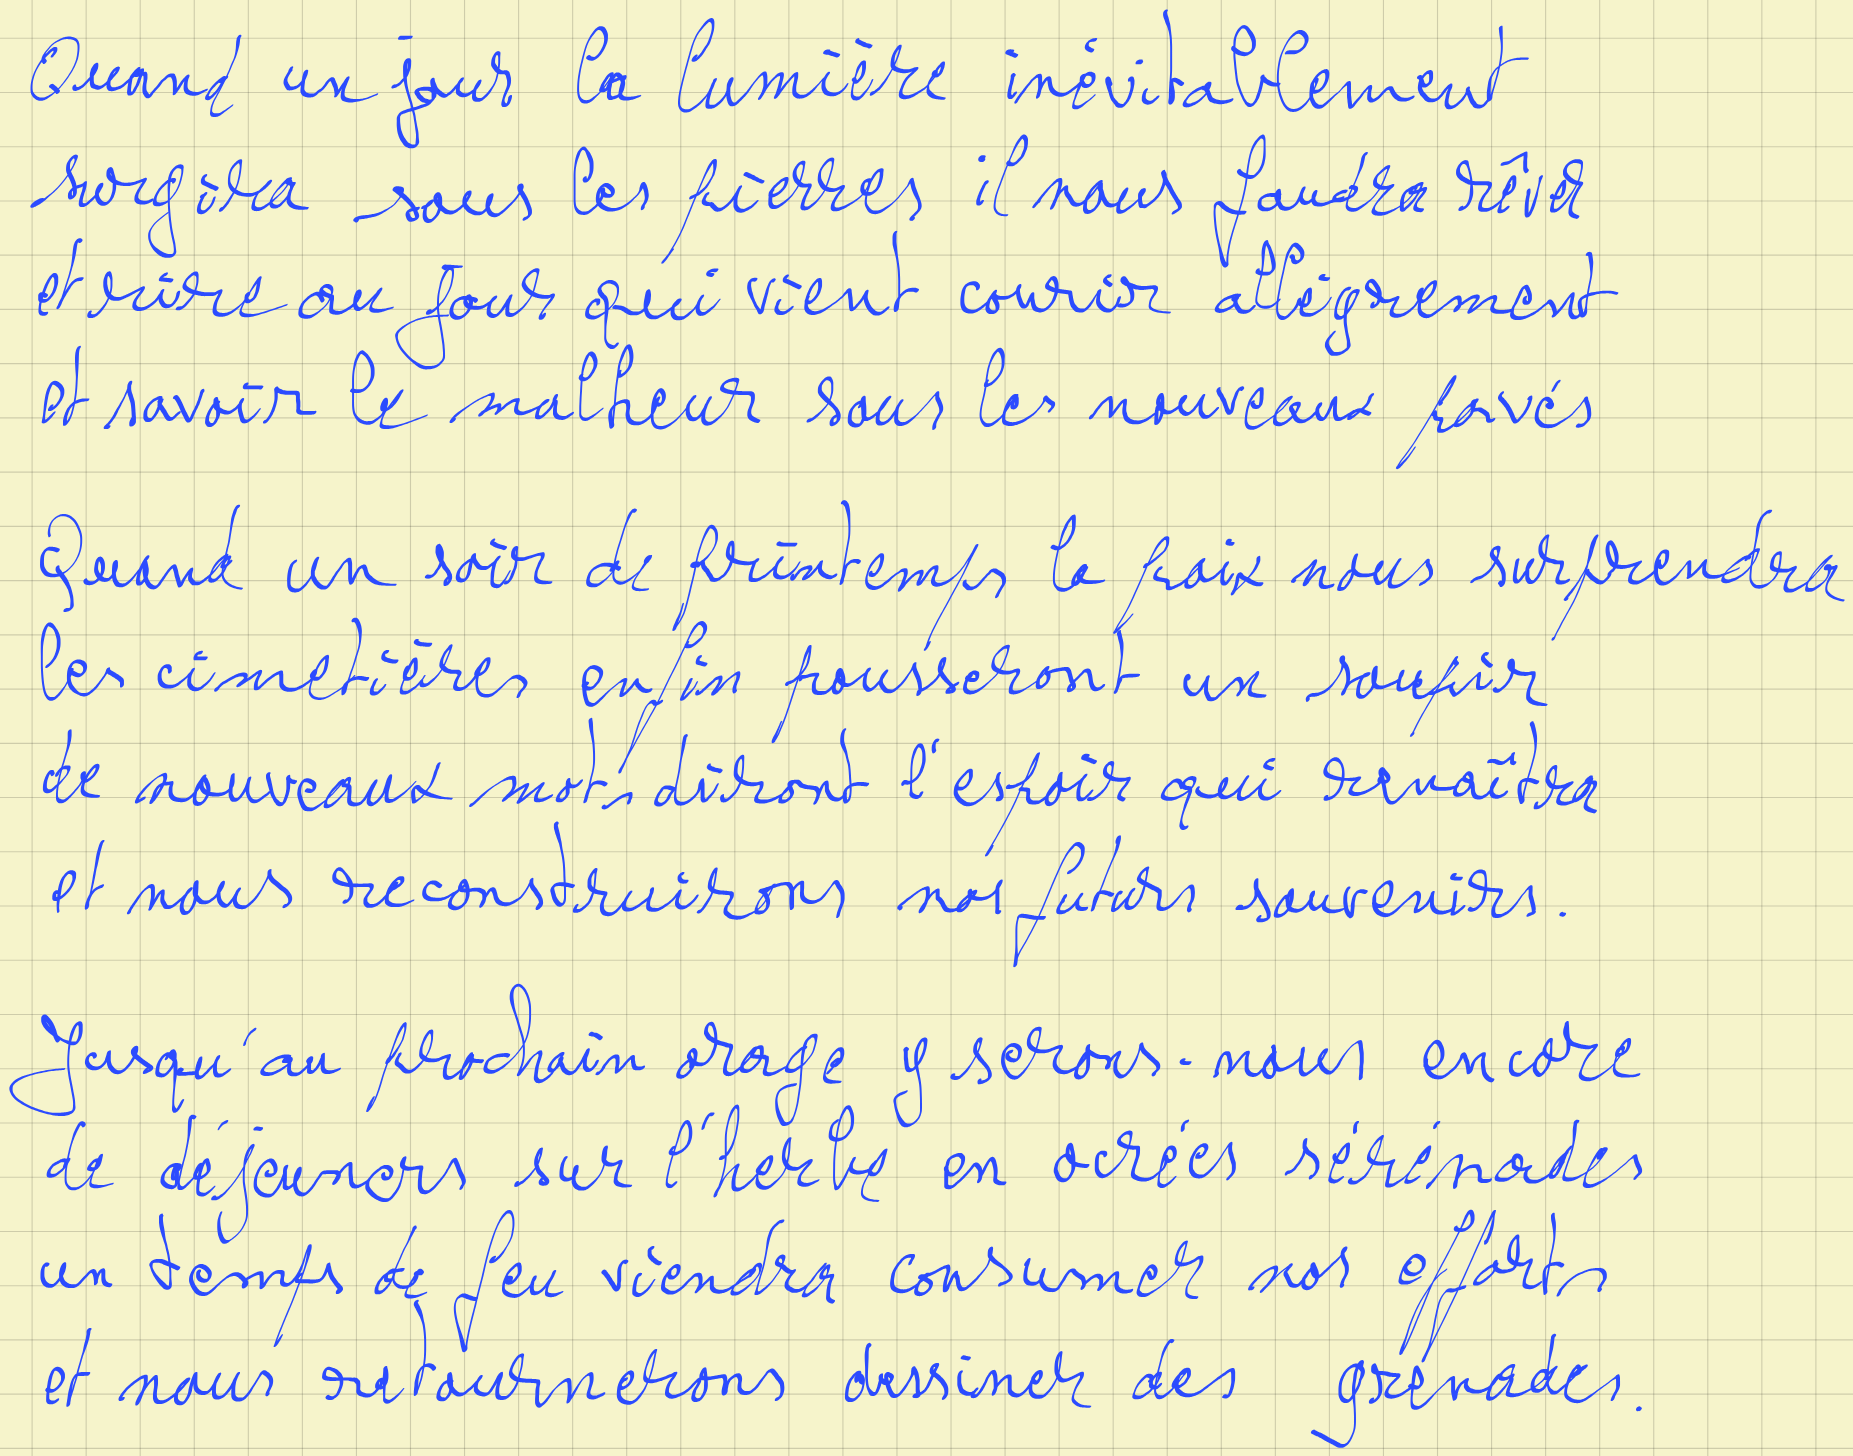 Quand un jour la lumière inévitablement
surgira sous les pierres il nous faudra rêver
et rire au jour qui vient courir allégrement
et savoir le malheur sous les nouveaux pavés
Quand un soir de printemps la paix nous surprendra
les cimetières enfin pousseront un soupir
de nouveaux mots diront l'espoir qui renaîtra
et nous reconstruirons nos futurs souvenirs.
Jusqu'au prochain orage y serons-nous encore
de déjeuners sur l'herbe en ocrées sérénades
un temps de feu viendra consumer nos efforts
et nous retournerons dessiner des grenades.